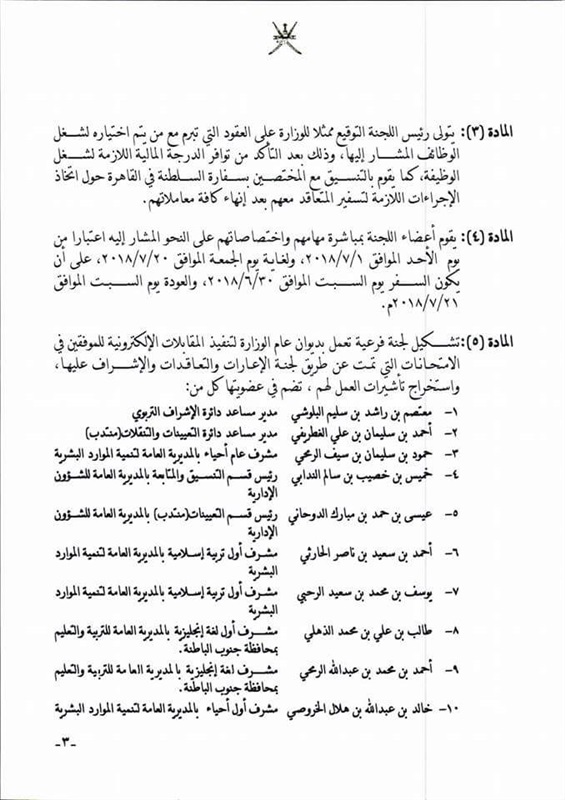 المادة (٣): يتولى رئيس اللجنة التوقيع ممثلا للوزارة على العقود التي تبرم مع من يتم اختياره لشغل
الوظائف المشار إليها، وذلك بعد التأكد من توافر الدرجة المالية اللازمة لشغل
الوظيفة، كما يقوم بالتنسيق مع المختصين بسفارة السلطنة في القاهرة حول اتخاذ
الإجراءات اللازمة لتسفير المتعاقد معهم بعد إنهاء كافة معاملاتهم.
المادة (٤): يقوم أعضاء اللجنة بمباشرة مهامهم واختصاصاتهم على النحو المشار إليه اعتبارا من
يوم الأحد الموافق ٢٠١٨/٧/١، ولغاية يوم الجمعة الموافق ٢٠١٨/٧/٢٠، على أن
يكون السفر يوم السبت الموافق ٢٠١٨/٦/٣٠، والعودة يوم السبت الموافق
٢٠١٨/٧/٢١م.
المادة (٥): تشكيل لجنة فرعية تعمل بديوان عام الوزارة لتنفيذ المقابلات الإلكترونية للموفقين في
الامتحانات التي تمت عن طريق لجنة الإعارات والتعاقدات والإشراف عليها،
واستخراج تأشيرات العمل لهم ، تضم في عضويتها كل من:
١- معتصم بن راشد بن سليم البلوشي مدير مساعد دائرة الإشراف التربوي
٢- أحمد بن سليمان بن علي الغطريفي مدير مساعد دائرة التعيينات والتنقلات(منتدب)
٣- حمود بن سليمان بن سيف الرمحي مشرف عام أحياء بالمديرية العامة لتنمية الموارد البشرية
٤- خميس بن خصيب بن سالم الندابي رئيس قسم التنسيق والمتابعة بالمديرية العامة للشؤون
الإدارية
٥- عيسى بن حمد بن مبارك الدوحاني رئيس قسم التعيينات(منتدب) بالمديرية العامة للشؤون
الإدارية
٦- أحمد بن سعيد بن ناصر الحارثي مشرف أول تربية إسلامية بالمديرية العامة لتنمية الموارد
البشرية
٧- يوسف بن محمد بن سعيد الرحبي مشرف أول تربية إسلامية بالمديرية العامة لتنمية الموارد
البشرية
٨- طالب بن علي بن محمد الذهلي مشرف أول لغة إنجليزية بالمديرية العامة للتربية والتعليم
بمحافظة جنوب الباطنة.
٩- أحمد بن محمد بن عبدالله الرمحي مشرف لغة إنجليزية بالمديرية العامة للتربية والتعليم
بمحافظة جنوب الباطنة.
١٠- خالد بن عبدالله بن هلال الخروصي مشرف أول أحياء بالمديرية العامة لتنمية الموارد البشرية
-٣-